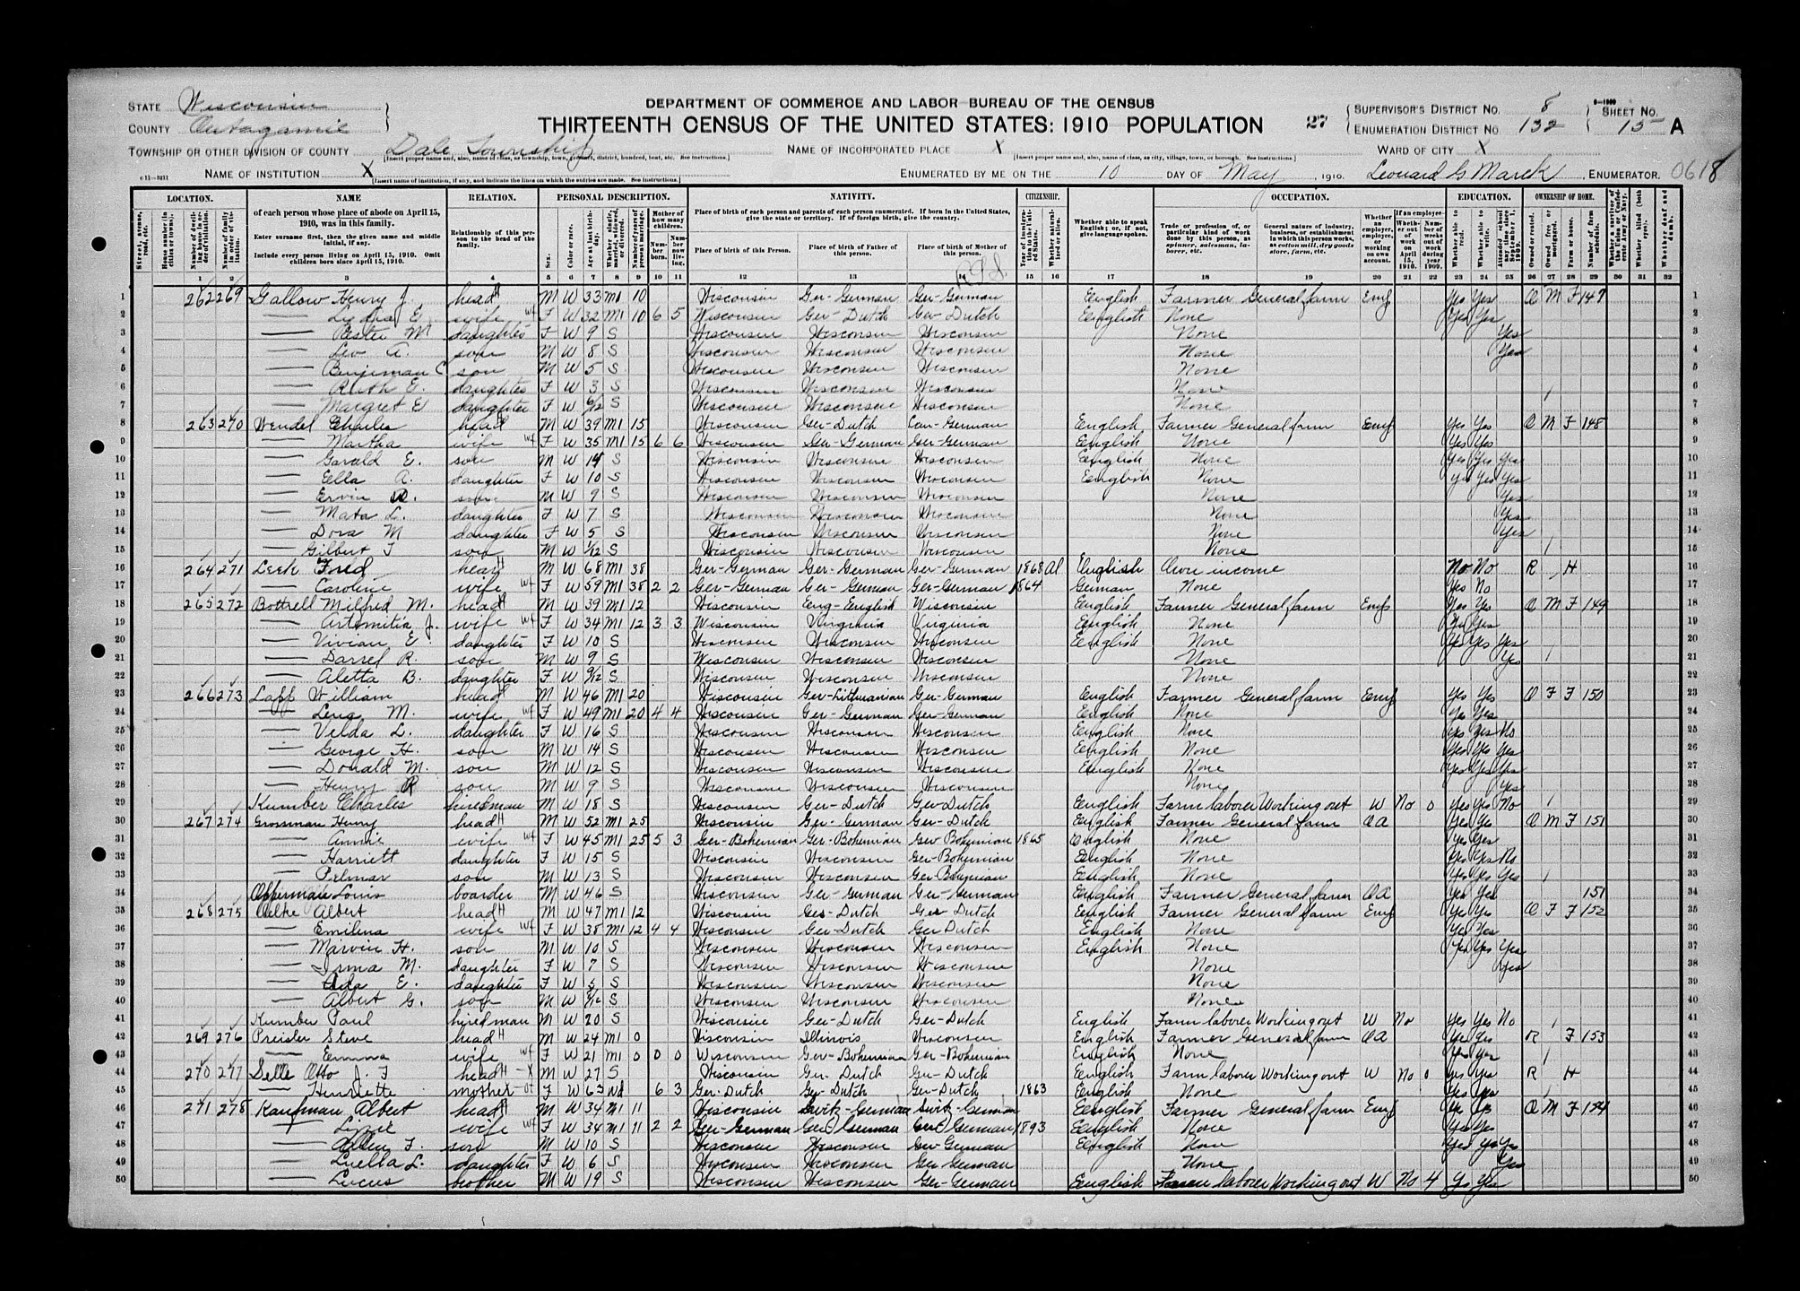 DEPARTMENT OF COMMERCE AND LABOR-BUREAU OF THE CENSUS
THIRTEENTH CENSUS OF THE UNITED STATES: 1910 POPULATION
STATE Wisconsin
COUNTY Outagamie
TOWNSHIP OR OTHER DIVISION OF COUNTY Dale Township
NAME OF INSTITUTION X
NAME OF INCORPORATED PLACE X
ENUMERATED BY ME ON THE 10 DAY OF May, 1910.
27
SUPERVISOR'S DISTRICT NO. 8
ENUMERATION DISTRICT NO. 132
SHEET NO. 15 A
WARD OF CITY X
Leonard G Marck, ENUMERATOR. 0618
LOCATION. NAME RELATION. PERSONAL DESCRIPTION. NATIVITY. CITIZENSHIP. OCCUPATION. EDUCATION. OWNERSHIP OF HOME.
of each person whose place of abode on April 15, 1910, was in this family.
Enter surname first, then the given name and middle initial, if any.
Include every person living on April 15, 1910. Omit children born since April 15, 1910.
Relationship of this person to the head of the family.
Place of birth of each person and parents of each person enumerated. If born in the United States, give the state or territory. If of foreign birth, give the country.
Place of birth of this Person. Place of birth of Father of this person. Place of birth of Mother of this person.
Whether able to speak English; or, if not, give language spoken.
1 262 269 Gallow Henry J. head M W 33 M1 10 Wisconsin Ger-German Ger-German English Farmer General farm Emp Yes Yes O M F 147
2 wife F W 32 M1 10 6 5 Wisconsin Ger-Dutch Ger-Dutch English None Yes Yes
3 M daughter F W 9 S Wisconsin Wisconsin Wisconsin None Yes
4 Leo A. son M W 8 S Wisconsin Wisconsin Wisconsin None Yes
5 Benjiman C son M W 5 S Wisconsin Wisconsin Wisconsin None
6 Ruth E. daughter F W 3 S Wisconsin Wisconsin Wisconsin None
7 Margret E daughter F W 6/12 S Wisconsin Wisconsin Wisconsin None
8 263 270 Wendel Charles head M W 39 M1 15 Wisconsin Ger-Dutch Can-German English Farmer General farm Emp Yes Yes O M F 148
9 Martha wife F W 35 M1 15 6 6 Wisconsin Ger-German Ger-German English None Yes Yes
10 Garald E. son M W 14 S Wisconsin Wisconsin Wisconsin English None Yes Yes Yes
11 Ella A. daughter F W 10 S Wisconsin Wisconsin Wisconsin English None Yes Yes Yes
12 Ervin W. son M W 9 S Wisconsin Wisconsin Wisconsin None Yes
13 Mata L. daughter F W 7 S Wisconsin Wisconsin Wisconsin None Yes
14 Dora M daughter F W 5 S Wisconsin Wisconsin Wisconsin None Yes
15 Gilbert F son M W 1/12 S Wisconsin Wisconsin Wisconsin None
16 264 271 Fred head M W 68 M1 38 Ger-German Ger-German Ger-German 1868 Al English Own income No No R H
17 Caroline wife F W 59 M1 38 2 2 Ger-German Ger-German Ger-German 1864 German None Yes No
18 265 272 Bottrell Milfred M. head M W 39 M1 12 Wisconsin Eng-English Wisconsin English Farmer General farm Emp Yes Yes O M F 149
19 Artimitia J. wife F W 34 M1 12 3 3 Wisconsin Virginia Virginia English None Yes Yes
20 Vivian E. daughter F W 10 S Wisconsin Wisconsin Wisconsin English None Yes Yes Yes
21 Darrel R. son M W 9 S Wisconsin Wisconsin Wisconsin None Yes
22 Aletta B. daughter F W 9/12 S Wisconsin Wisconsin Wisconsin None
23 266 273 Lapp William head M W 46 M1 20 Wisconsin Ger-Lithuanian Ger-German English Farmer General farm Emp Yes Yes O F F 150
24 Lena M. wife F W 49 M1 20 4 4 Wisconsin Ger-German Ger-German English None Yes Yes
25 Velda L. daughter F W 16 S Wisconsin Wisconsin Wisconsin English None Yes Yes No
26 George H. son M W 14 S Wisconsin Wisconsin Wisconsin English None Yes Yes Yes
27 Donald M. son M W 12 S Wisconsin Wisconsin Wisconsin English None Yes Yes Yes
28 Henry R son M W 9 S Wisconsin Wisconsin Wisconsin None Yes
29 Kumber Charles hiredman M W 18 S Wisconsin Ger-Dutch Ger-Dutch English Farm laborer Working out W No 0 Yes Yes No
30 267 274 Grossman Henry head M W 52 M1 25 Wisconsin Ger-German Ger-Dutch English Farmer General farm OA Yes Yes O M F 151
31 Annie wife F W 45 M1 25 5 3 Ger-Bohemian Ger-Bohemian Ger Bohemian 1865 English None Yes Yes
32 Harriett daughter F W 15 S Wisconsin Wisconsin Ger-Bohemian English None Yes Yes No
33 son M W 13 S Wisconsin Wisconsin Ger-Bohemian English None Yes Yes Yes
34 Louis boarder M W 46 S Wisconsin Ger-German Ger-German English Farmer General farm OA Yes Yes 151
35 268 275 Albert head M W 47 M1 12 Wisconsin Ger-Dutch Ger Dutch English Farmer General farm Emp Yes Yes O F F 152
36 Emilina wife F W 38 M1 12 4 4 Wisconsin Ger-Dutch Ger Dutch English None Yes Yes
37 Marvin H. son M W 10 S Wisconsin Wisconsin Wisconsin English None Yes Yes Yes
38 Irma M. daughter F W 7 S Wisconsin Wisconsin Wisconsin None Yes
39 Ada E. daughter F W S Wisconsin Wisconsin Wisconsin None
40 Albert G. son M W S Wisconsin Wisconsin Wisconsin None
41 Kumber Paul hiredman M W 20 S Wisconsin Ger-Dutch Ger-Dutch English Farm laborer Working out W No Yes Yes No
42 269 276 Preisler Steve head M W 24 M1 0 Wisconsin Illinois Wisconsin English Farmer General farm OA Yes Yes R F 153
43 Emma wife F W 21 M1 0 0 0 Wisconsin Ger-Bohemian Ger-Bohemian English None Yes Yes
44 270 277 Selle Otto J. F head M W 27 S Wisconsin Ger Dutch Ger-Dutch English Farm laborer Working out W No 0 Yes Yes R H
45 Henriette mother F W 63 Wd 6 3 Ger-Dutch Ger-Dutch Ger-Dutch 1863 English None Yes Yes
46 271 278 Kaufman Albert head M W 34 M1 11 Wisconsin Switz-German Switz-German English Farmer General farm Emp Yes Yes O M F 154
47 Lizzie wife F W 34 M1 11 2 2 Ger-German Ger German Ger German 1893 English None Yes Yes
48 son M W 10 S Wisconsin Wisconsin Ger German English None Yes Yes Yes
49 Luella L. daughter F W 6 S Wisconsin Wisconsin Ger German None Yes
50 Lucus brother M W 19 S Wisconsin Wisconsin Ger-German English Farm laborer Working out W No 4 Yes Yes